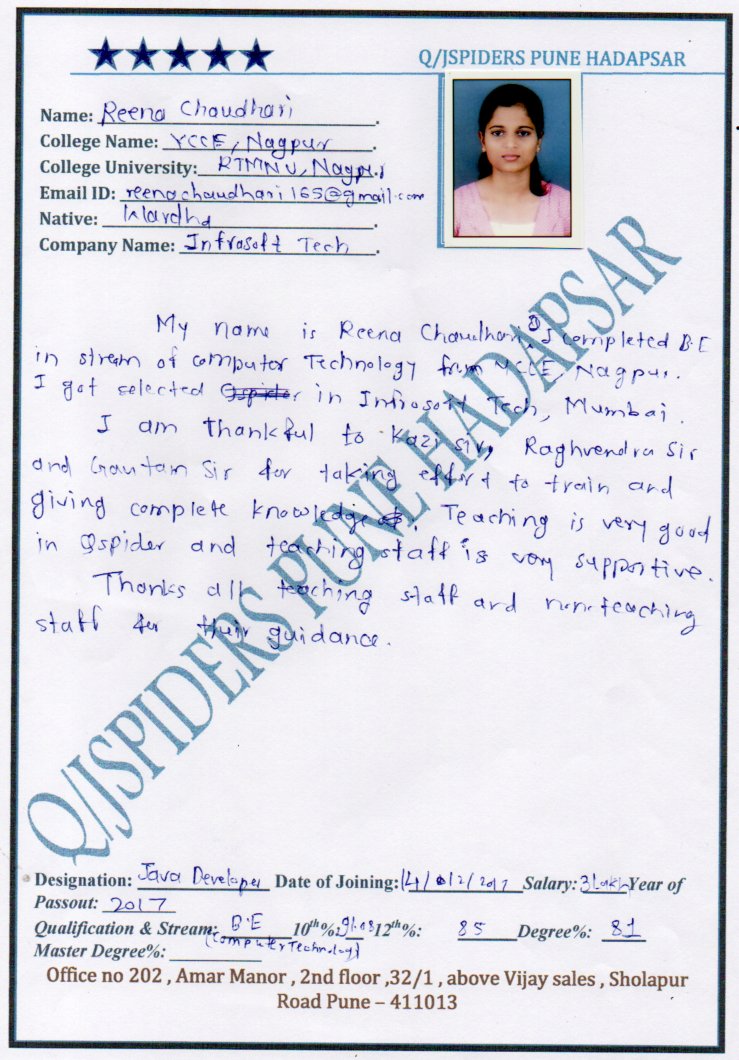 Q/JSPIDERS PUNE HADAPSAR
Name: Reena Chaudhari
College Name: YCCE, Nagpur
College University: RTMNU, Nagpur
Email ID: reenachaudhari165@gmail.com
Native: Wardha
Company Name: Infrasoft Tech
My name is Reena Chaudhari, I completed B.E
in stream of computer Technology from YCCE, Nagpur.
I got selected Qspider in Infrasoft Tech, Mumbai.
I am thankful to Kazi sir, Raghvendra Sir
and Gautam Sir for taking effort to train and
giving complete knowledge. Teaching is very good
in Qspider and teaching staff is very supportive.
Thanks all teaching staff and non-teaching
staff for their guidance.
Q/JSPIDERS PUNE HADAPSAR
Designation: Java Developer Date of Joining: Salary: 3 Lakh Year of
Passout: 2017
Qualification & Stream: B.E 10th%: 91.08 12th%: 85 Degree%: 81
(Computer Technology)
Master Degree%:
Office no 202 , Amar Manor , 2nd floor ,32/1 , above Vijay sales , Sholapur
Road Pune – 411013